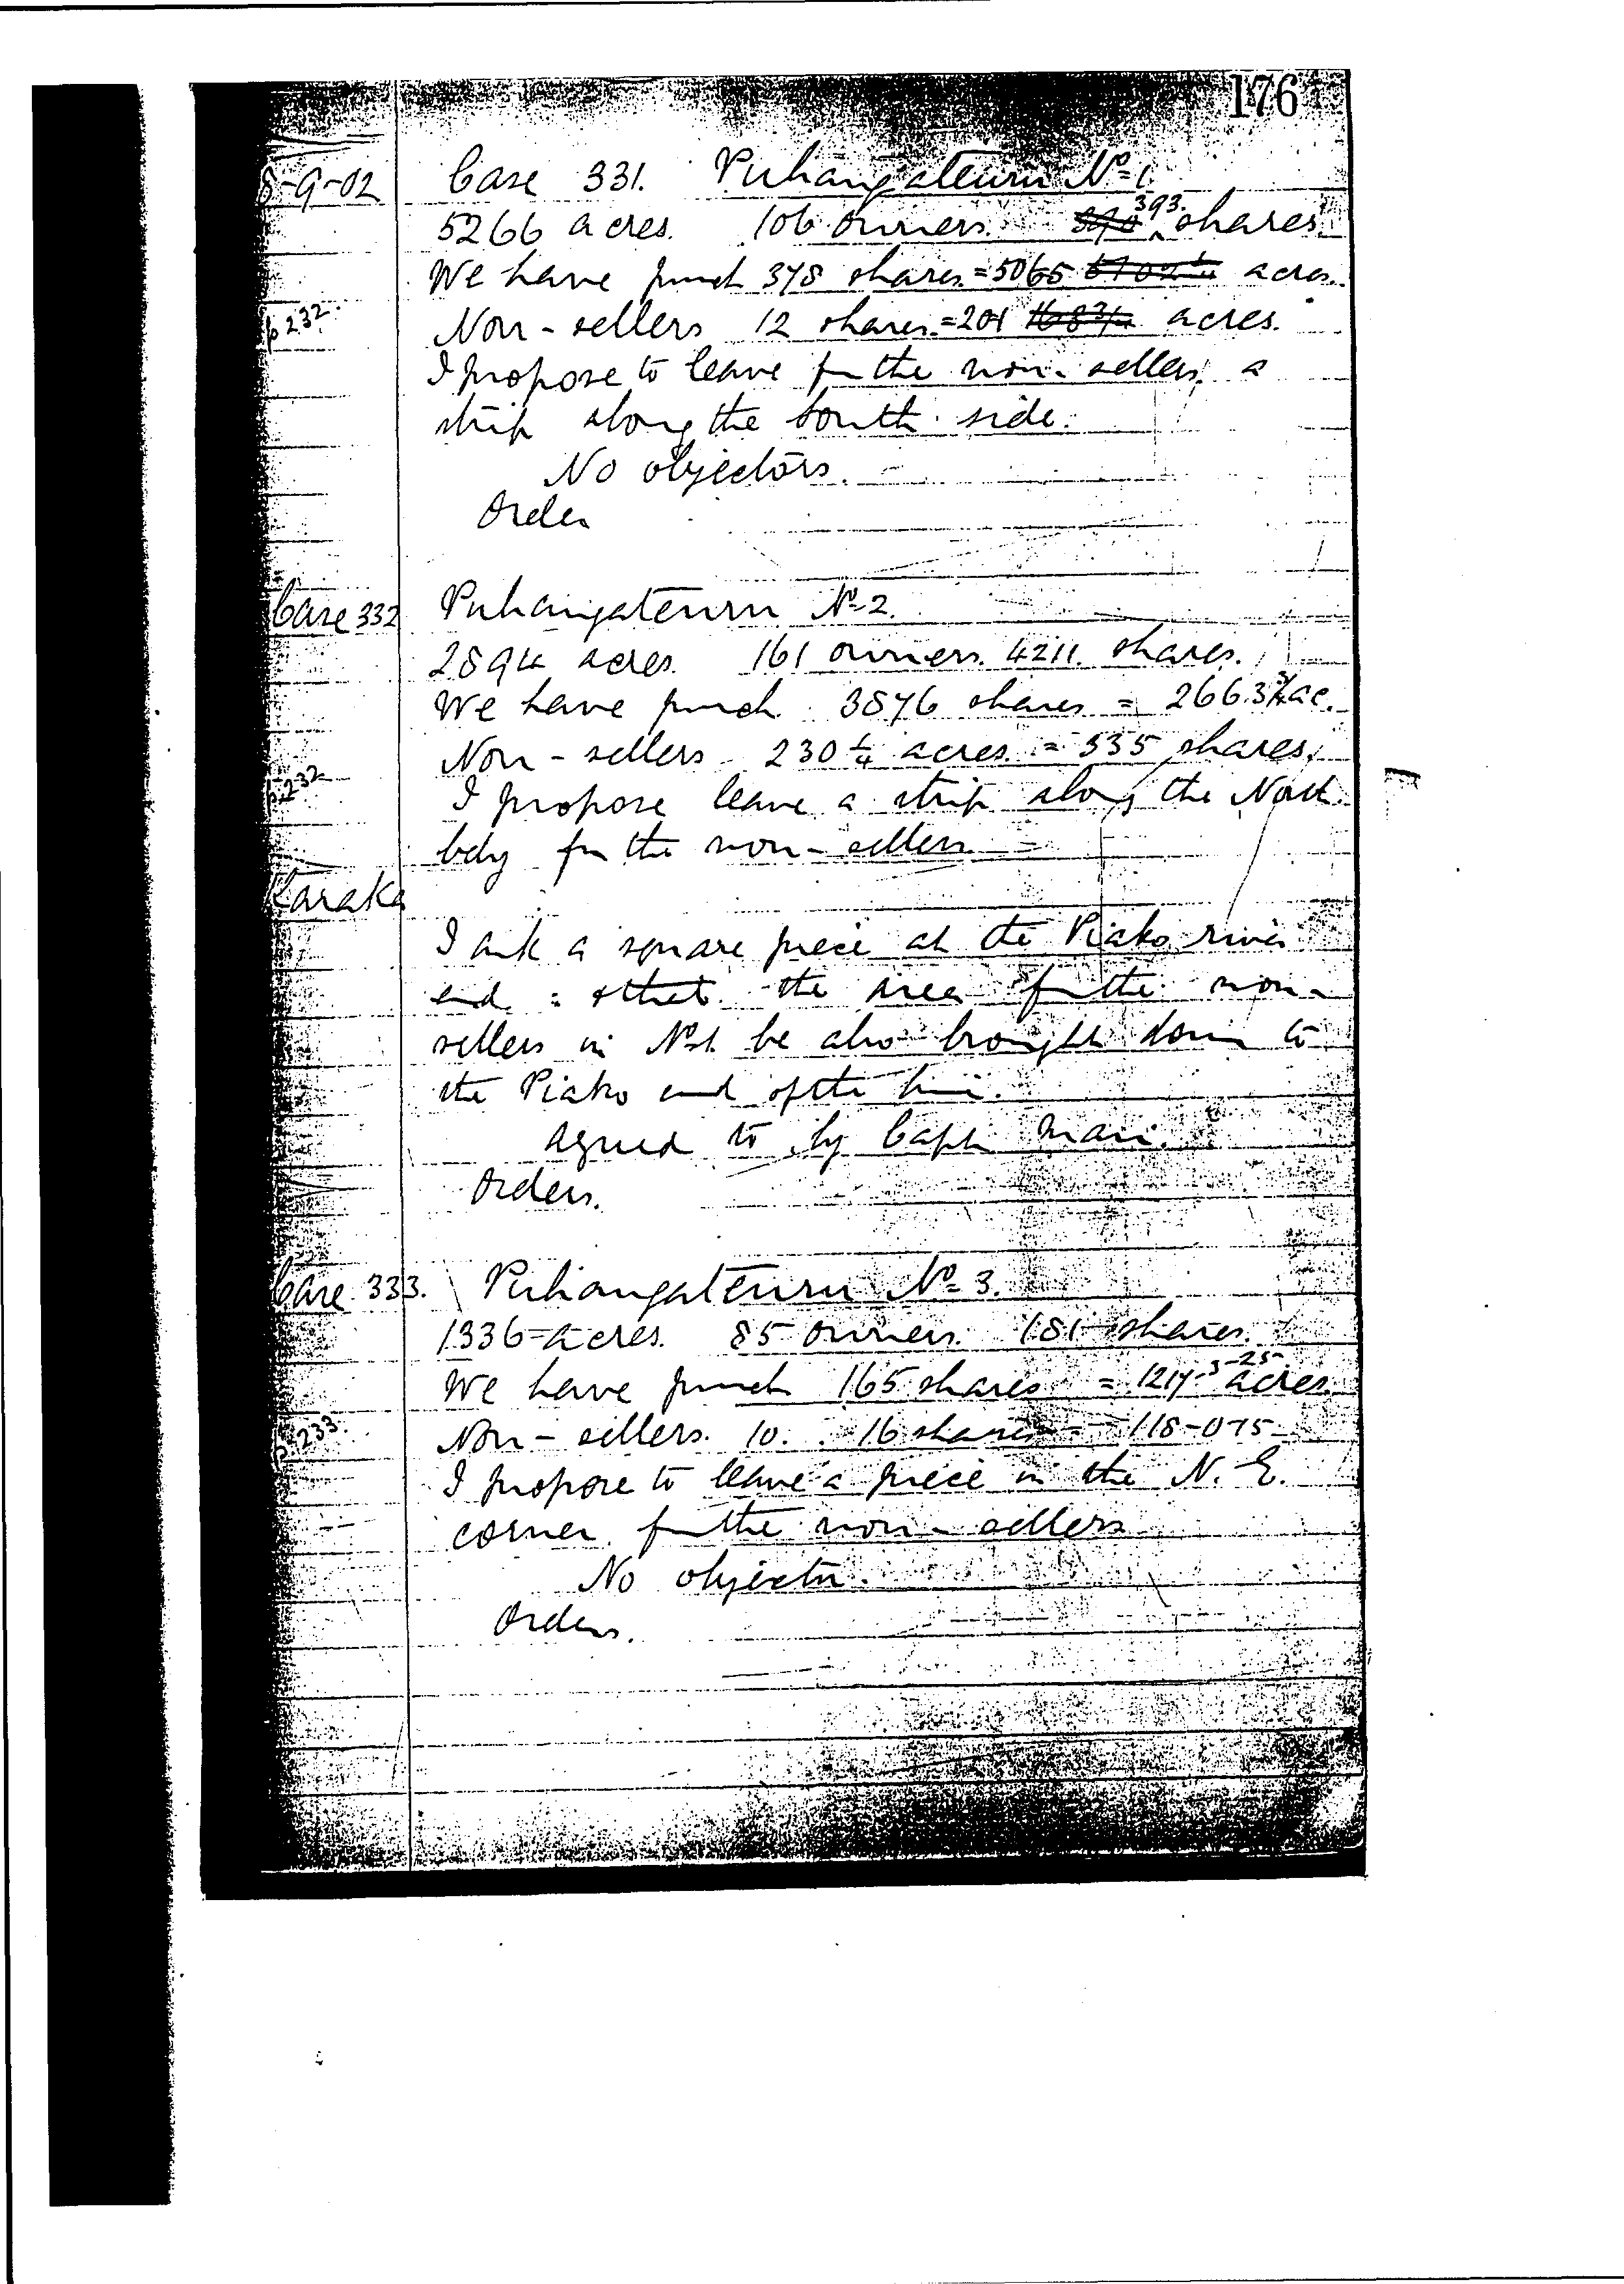 176
8-9-02 Case 331. Puhangateuru No 1.
5266 acres. 106 owners. 390 393. shares.
We have purch 378 shares = 5065 acres.
Non-sellers 12 shares = 201 168 3/4 acres.
p 232.
I propose to leave for the non-sellers a
strip along the South side.
No objectors.
Order
Case 332 Puhangateuru No 2.
2894 acres. 161 owners. 4211 shares.
We have purch. 3876 shares = 2663 3/4 ac.
Non-sellers 230 1/4 acres = 335 shares.
p. 232
I propose leave a strip along the North
bdy for the non-sellers
Karaka
I ask a square piece at the Piako river
end: & that the area for the non-
sellers in No 1. be also brought down to
the Piako end of the line.
Agreed to by Capt Mair.
Orders.
Case 333. Puhangateuru No 3.
1336 acres. 85 owners. 181 shares.
We have purch 165 shares = 1217-3-25 acres.
Non-sellers. 10. 16 shares = 118-0-15
p. 233.
I propose to leave a piece in the N. E.
corner for the non-sellers
No objector.
Orders.